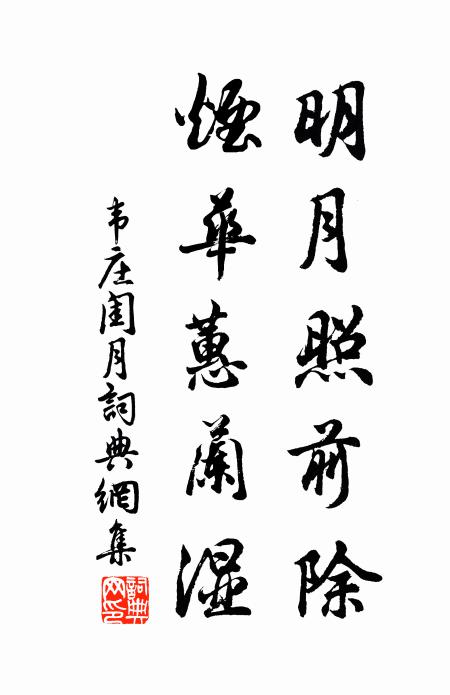 明月照前除
煙華蕙蘭濕
韦庄閨月詞典網集
詞典网印